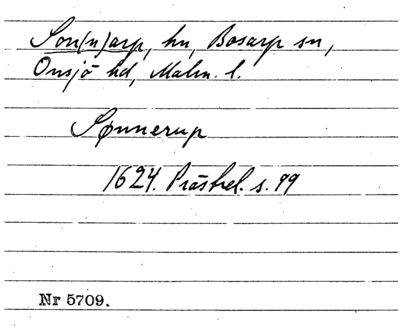 Son(n)arp, hn, Bosarp sn,
Onsjö hd, Malm. l.
Sønnerup
1624. Prästrel. s. 99
Nr 5709.